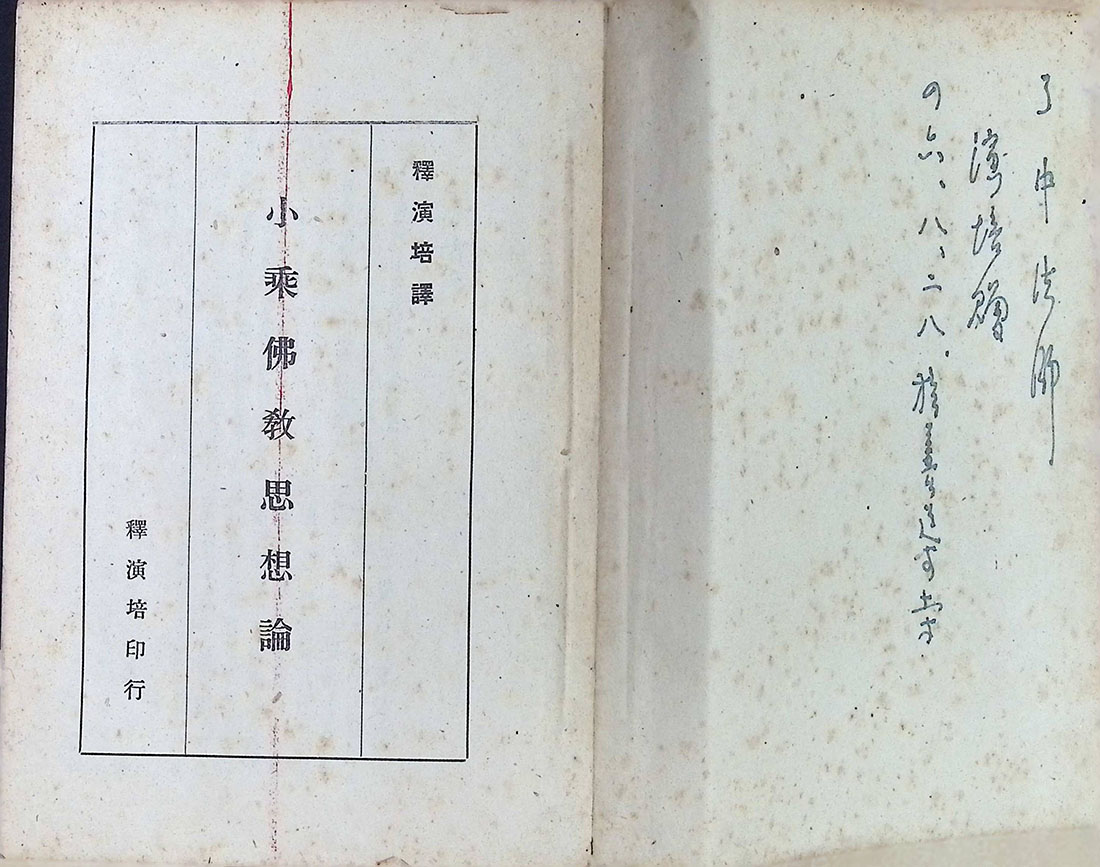 了中法師
演培贈
四六、八、二八.於善導寺
釋演培譯
小乘佛教思想論
釋演培印行